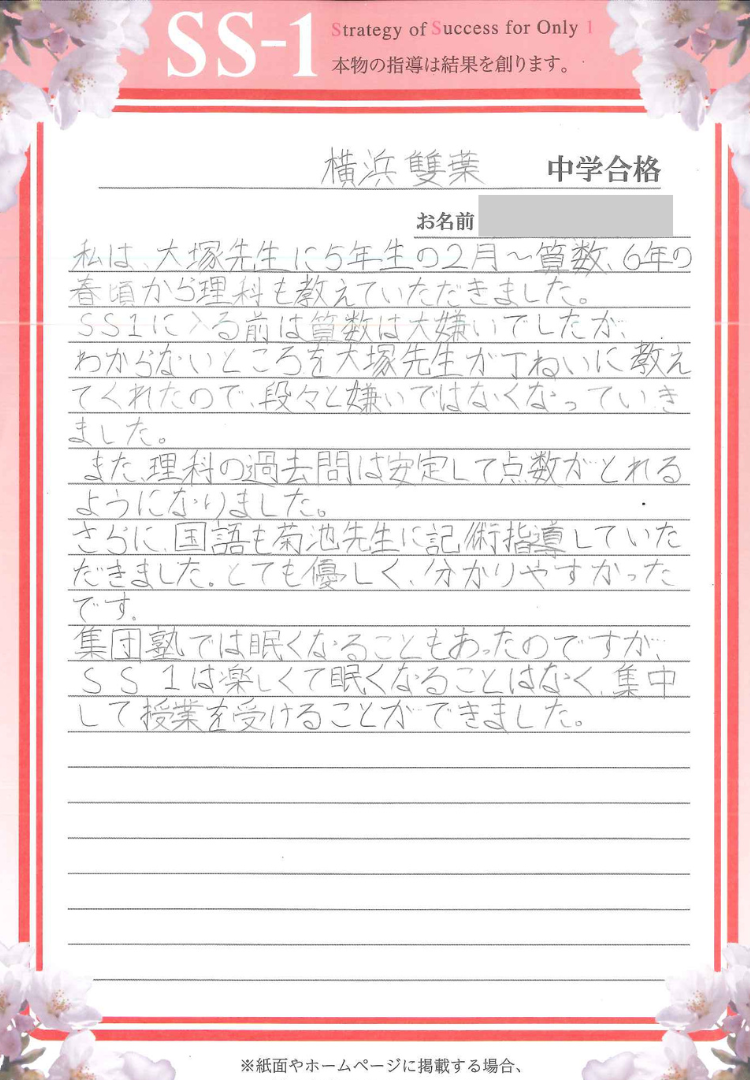 SS-1 Strategy of Success for Only 1
本物の指導は結果を創ります。
横浜雙葉 中学合格
お名前
私は、大塚先生に5年生の2月〜算数、6年の
春頃から理科も教えていただきました。
SS1に入る前は算数は大嫌いでしたが、
わからないところを大塚先生が丁ねいに教え
てくれたので、段々と嫌いではなくなっていき
ました。
また、理科の過去問は安定して点数がとれる
ようになりました。
さらに、国語も菊池先生に記術指導していた
だきました。とても優しく、分かりやすかった
です。
集団塾では眠くなることもあったのですが、
SS1は楽しくて眠くなることはなく、集中
して授業を受けることができました。
※紙面やホームページに掲載する場合、